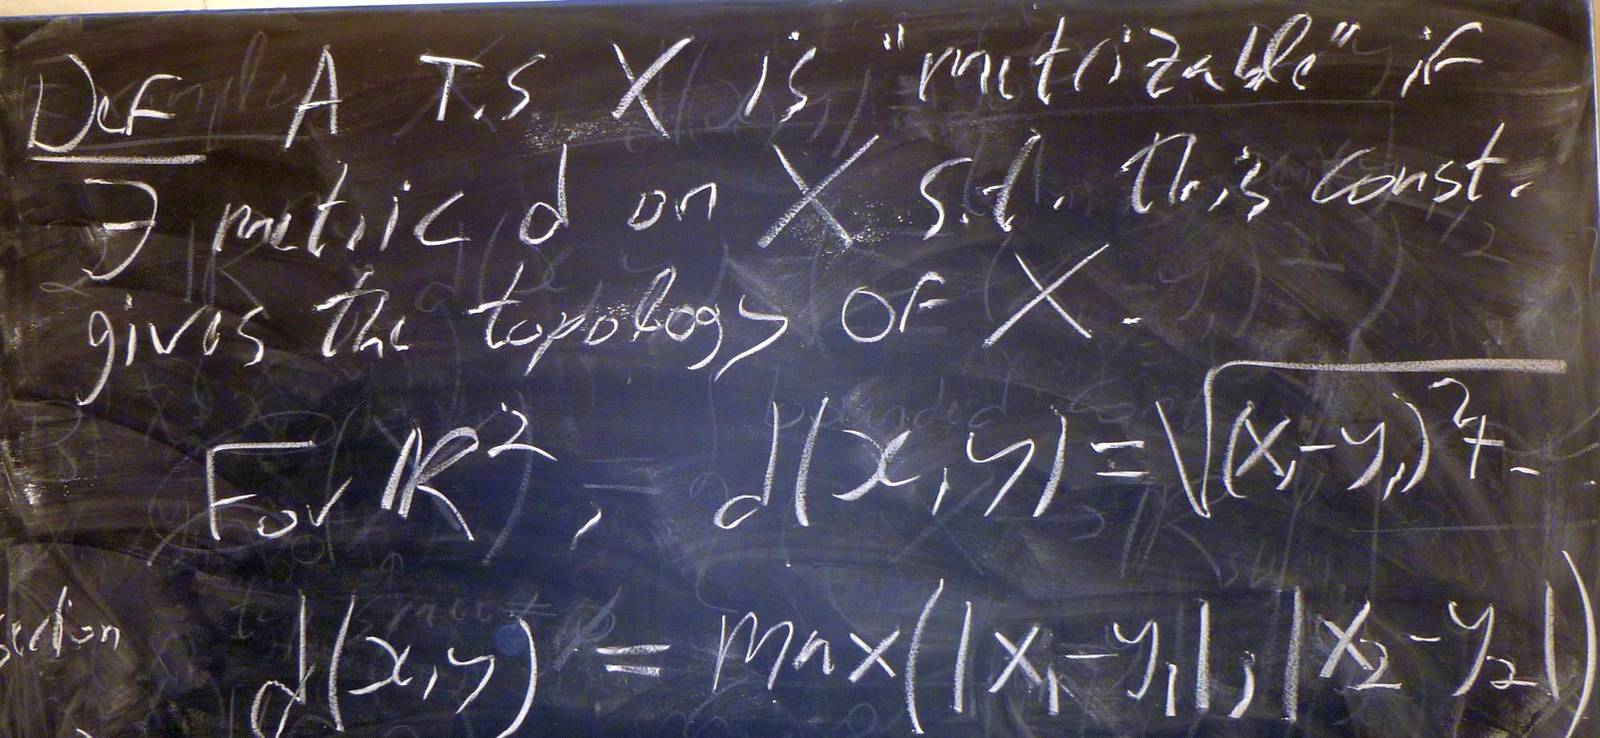 Def A T.S X is "metrizable" if
∃ metric d on X s.t. this const.
gives the topology of X.
For ℝ², d(x,y)=√(x₁-y₁)²+-
section
d(x,y) = max(|x₁-y₁|,|x₂-y₂|)